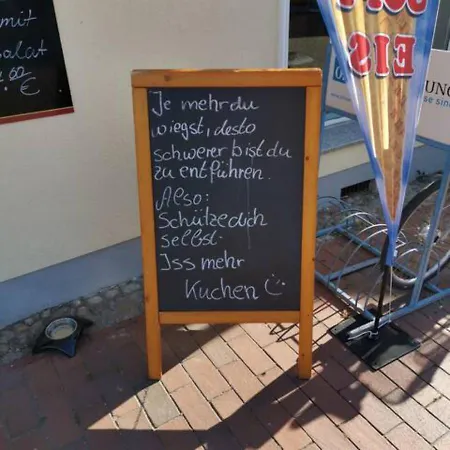 mit
salat
€
Je mehr du
wiegst, desto
schwerer bist du
zu entführen.
Also:
Schütze dich
selbst.
Iss mehr
Kuchen
EIS
UNG